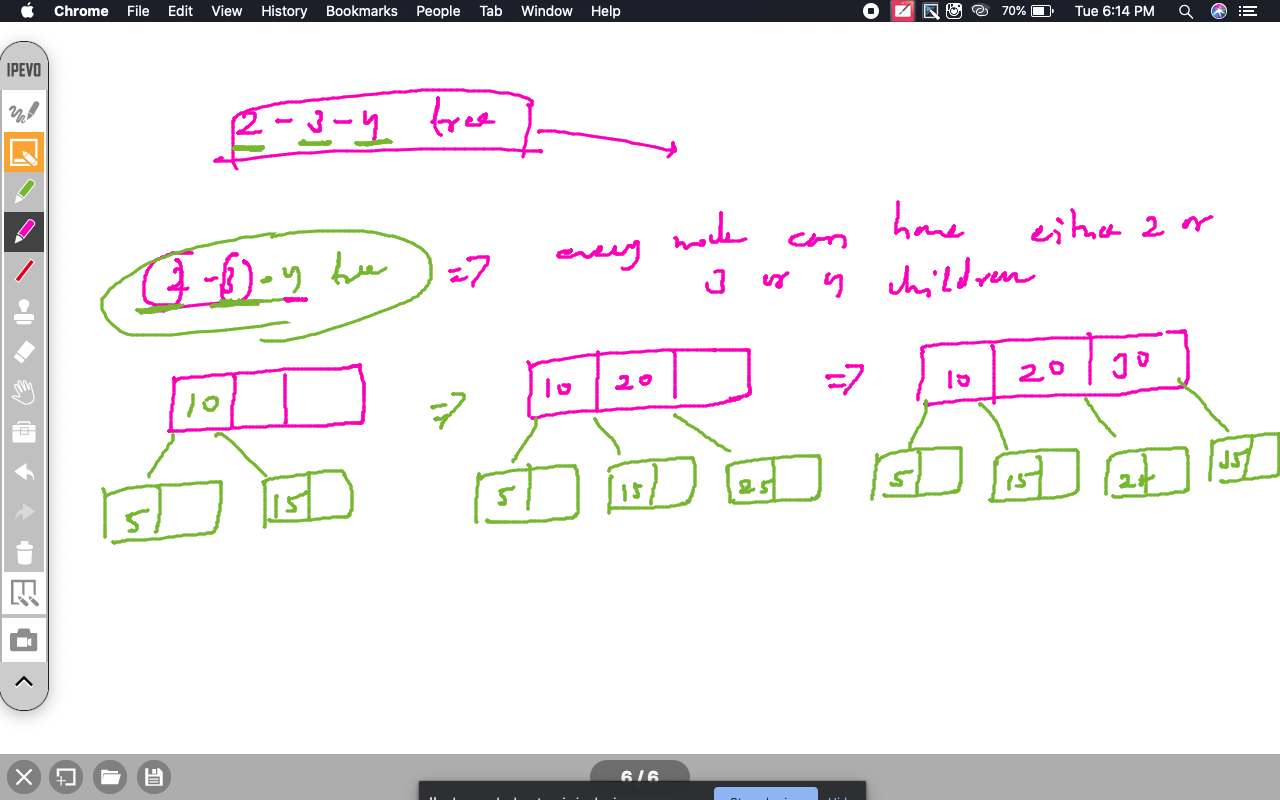 Chrome File Edit View History Bookmarks People Tab Window Help 70% Tue 6:14 PM
IPEVO
2 - 3 - 4 tree
2 - 3 - 4 tree => every node can have either 2 or
3 or 4 children
10 => 10 20 => 10 20 30
5 15 5 15 25 5 15 35
6 / 6